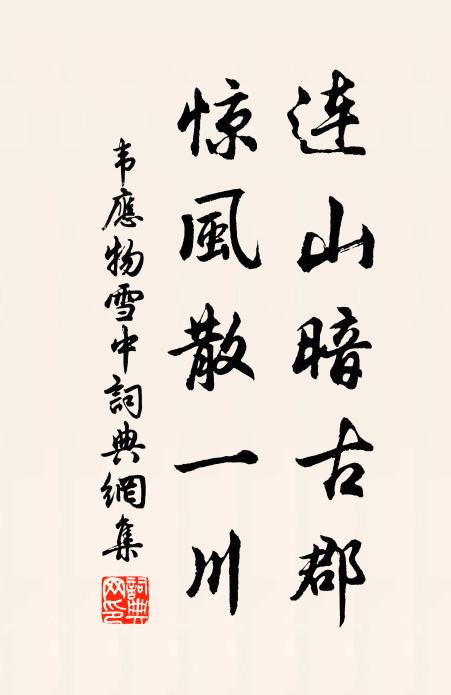 连山暗古郡
惊風散一川
韦應物雪中詞典網集
詞典网印